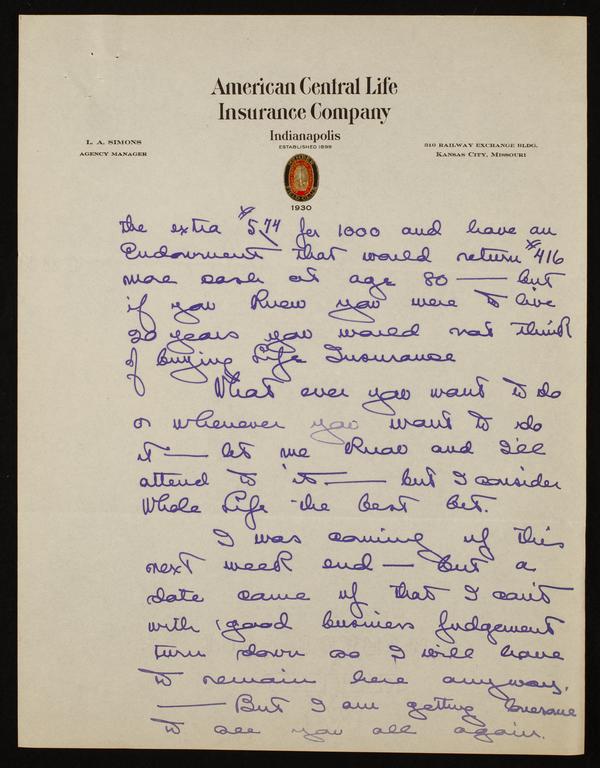 American Central Life
Insurance Company
Indianapolis
ESTABLISHED 1899
L. A. SIMONS
AGENCY MANAGER
310 RAILWAY EXCHANGE BLDG.
KANSAS CITY, MISSOURI
1930
the extra $5.74 per 1000 and have an
Endowment that would return $416
more cash at age 80 — but
if you knew you were to live
20 years you would not think
of buying Life Insurance
What ever you want to do
or whenever you want to do
it — let me know and I'll
attend to it — but I consider
Whole Life the best bet.
I was coming up this
next week end — But a
date came up that I can't
with good business judgement
turn down so I will have
to remain here anyway.
— But I am getting lonesome
to see you all again.